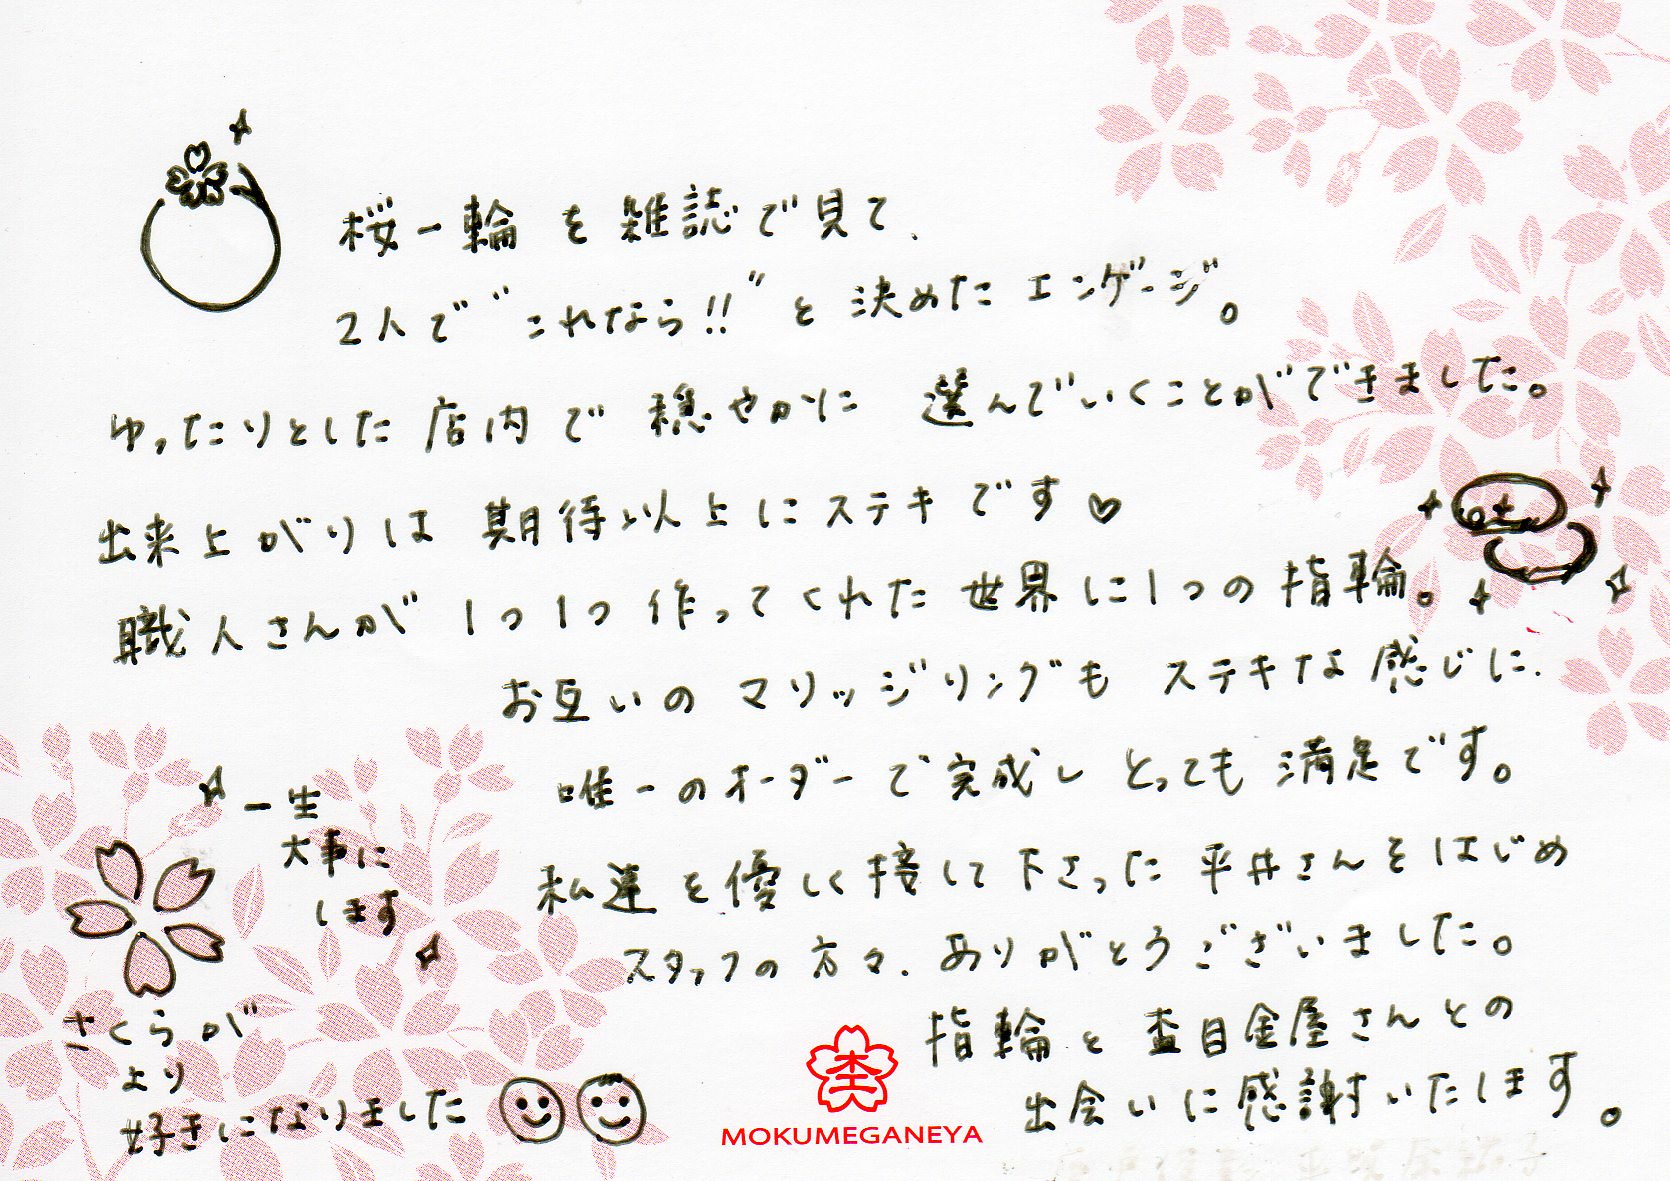 桜一輪を雑誌で見て、
2人で"これなら!!"と決めたエンゲージ。
ゆったりとした店内で穏やかに選んでいくことができました。
出来上がりは期待以上にステキです♡
職人さんが1つ1つ作ってくれた世界に1つの指輪。
お互いのマリッジリングもステキな感じに、
唯一のオーダーで完成しとっても満足です。
私達を優しく接して下さった平井さんをはじめ
スタッフの方々、ありがとうございました。
指輪と杢目金屋さんとの
出会いに感謝いたします。
一生
大事に
します
さくらが
より
好きになりました
杢
MOKUMEGANEYA